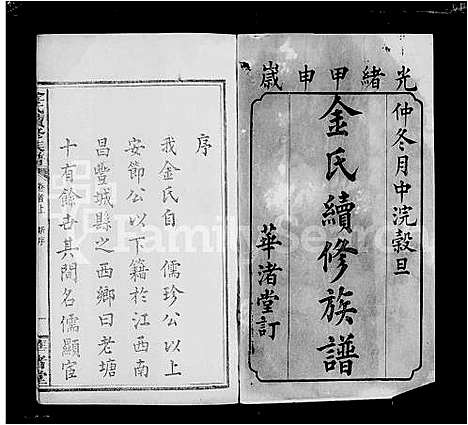 光緒甲申歲
仲冬月中浣穀旦
金氏續修族譜
華渚堂訂
序
我金氏自 儒珍公以上
安節公以下籍於江西南
昌豐城縣之西鄉曰老塘
十有餘世其間名儒顯宦
金氏續修族譜 卷首上 新序 一 華渚堂
FamilySearch